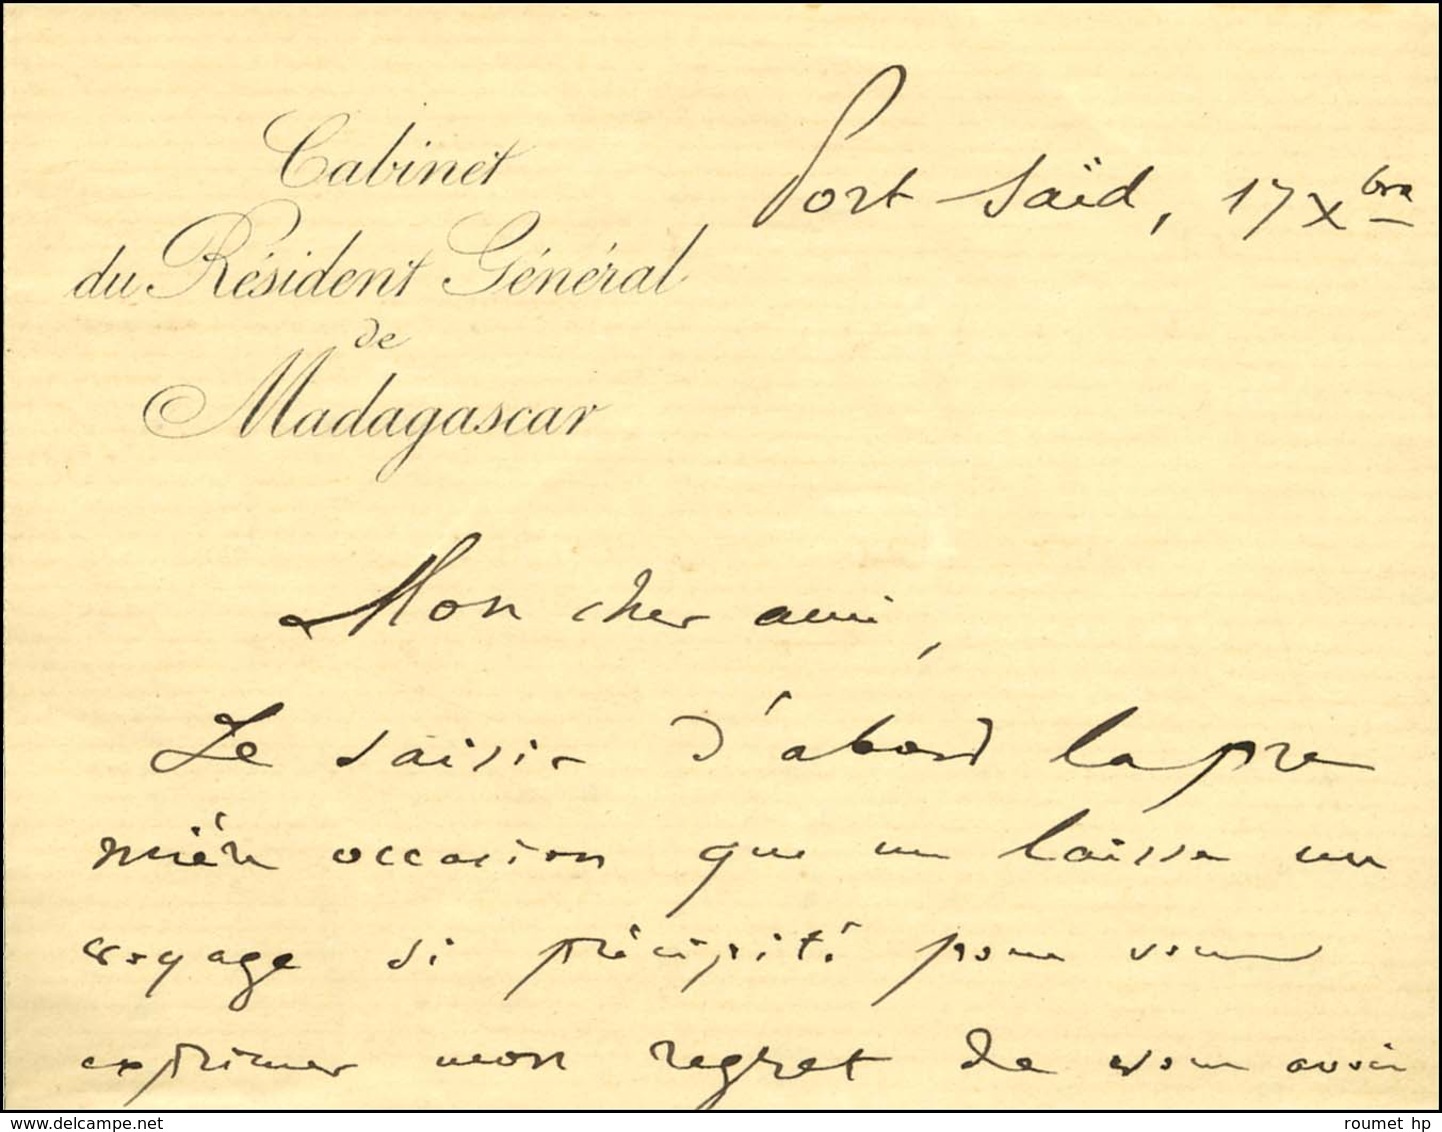 Cabinet
du Résident Général
de
Madagascar
Port Saïd, 17 Xbre
Mon cher ami,
Je saisis d'abord la pre
mière occasion que me laisse un
voyage si précipité pour vous
exprimer mon regret de vous avoir
www.delcampe.net
roumet hp